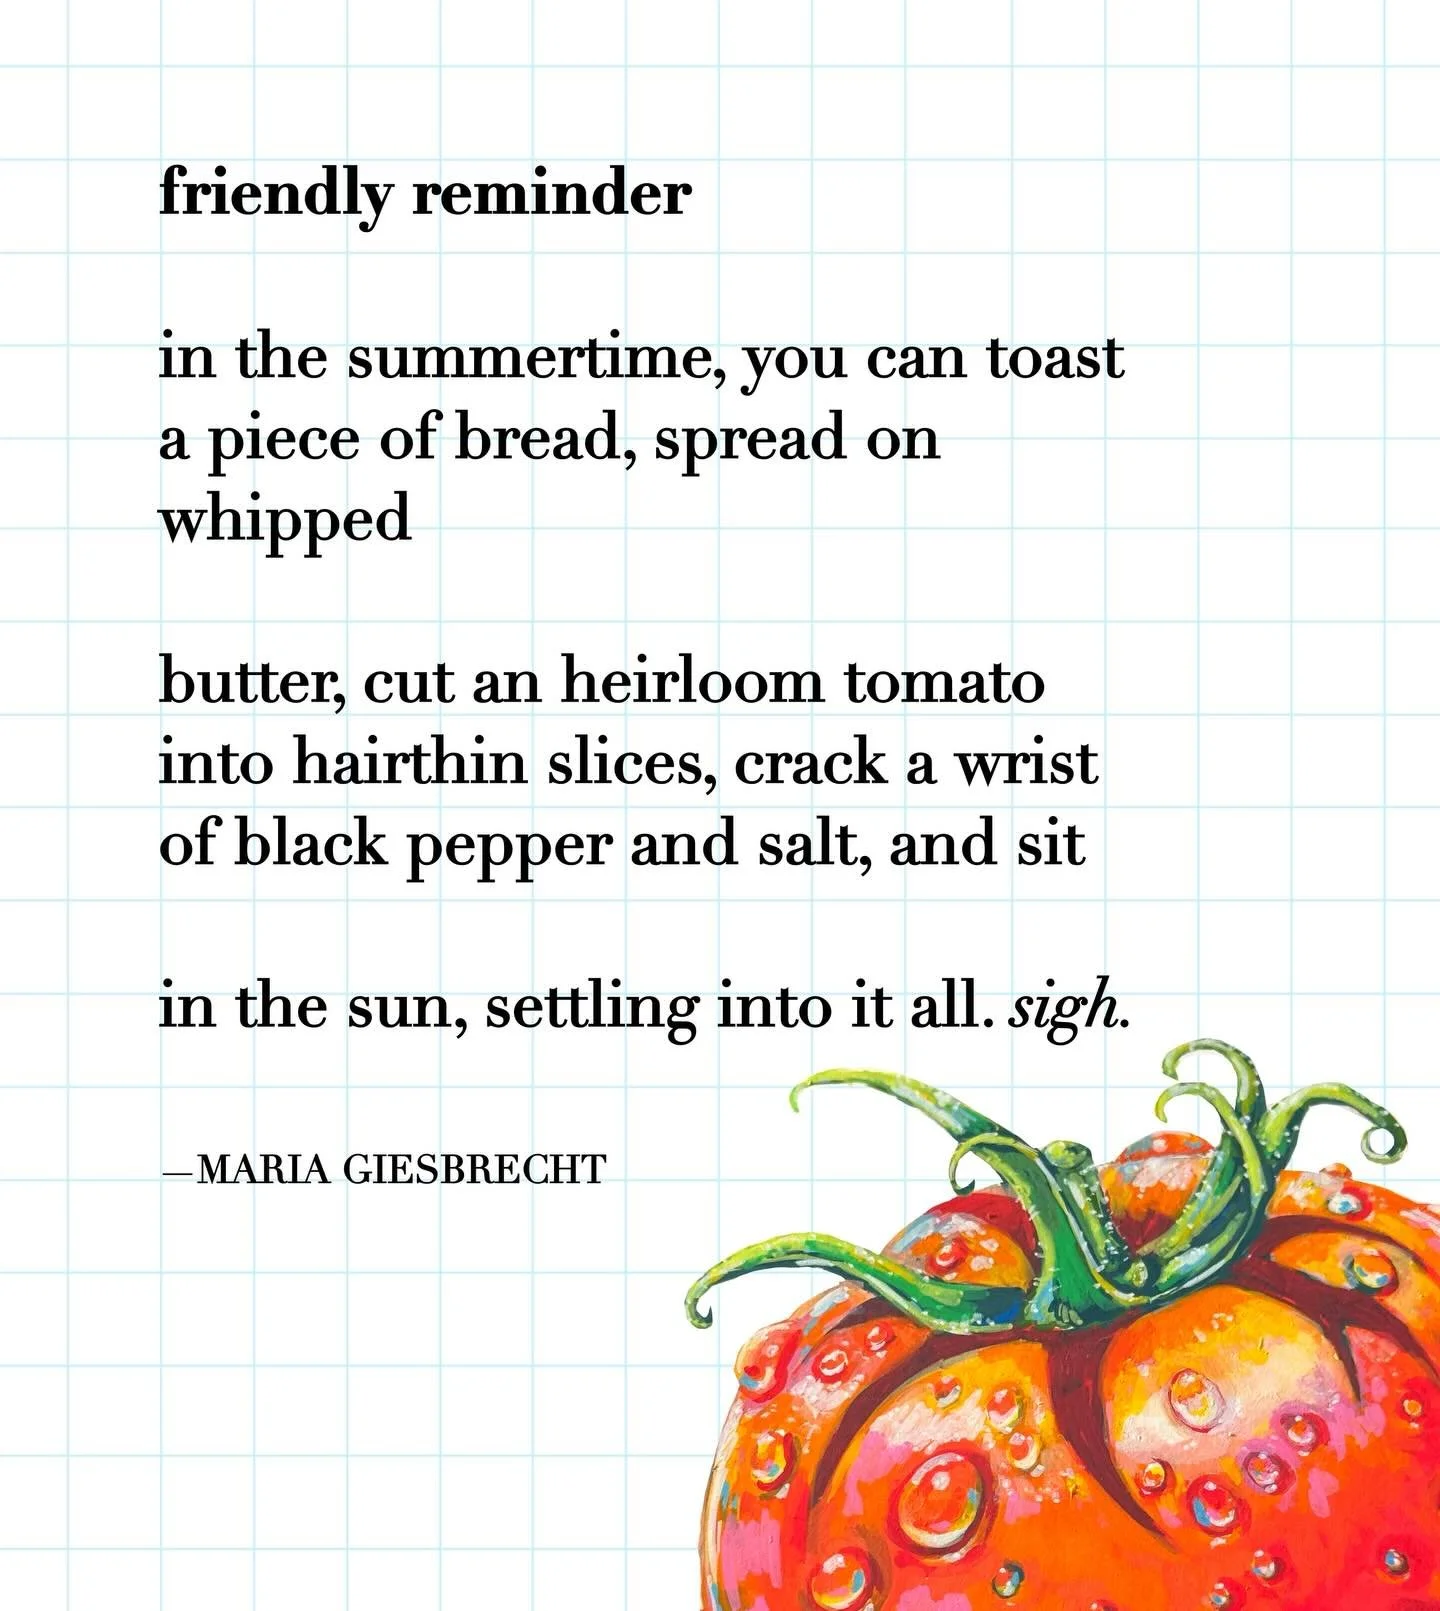 friendly reminder
in the summertime, you can toast
a piece of bread, spread on
whipped
butter, cut an heirloom tomato
into hairthin slices, crack a wrist
of black pepper and salt, and sit
in the sun, settling into it all. sigh.
—MARIA GIESBRECHT